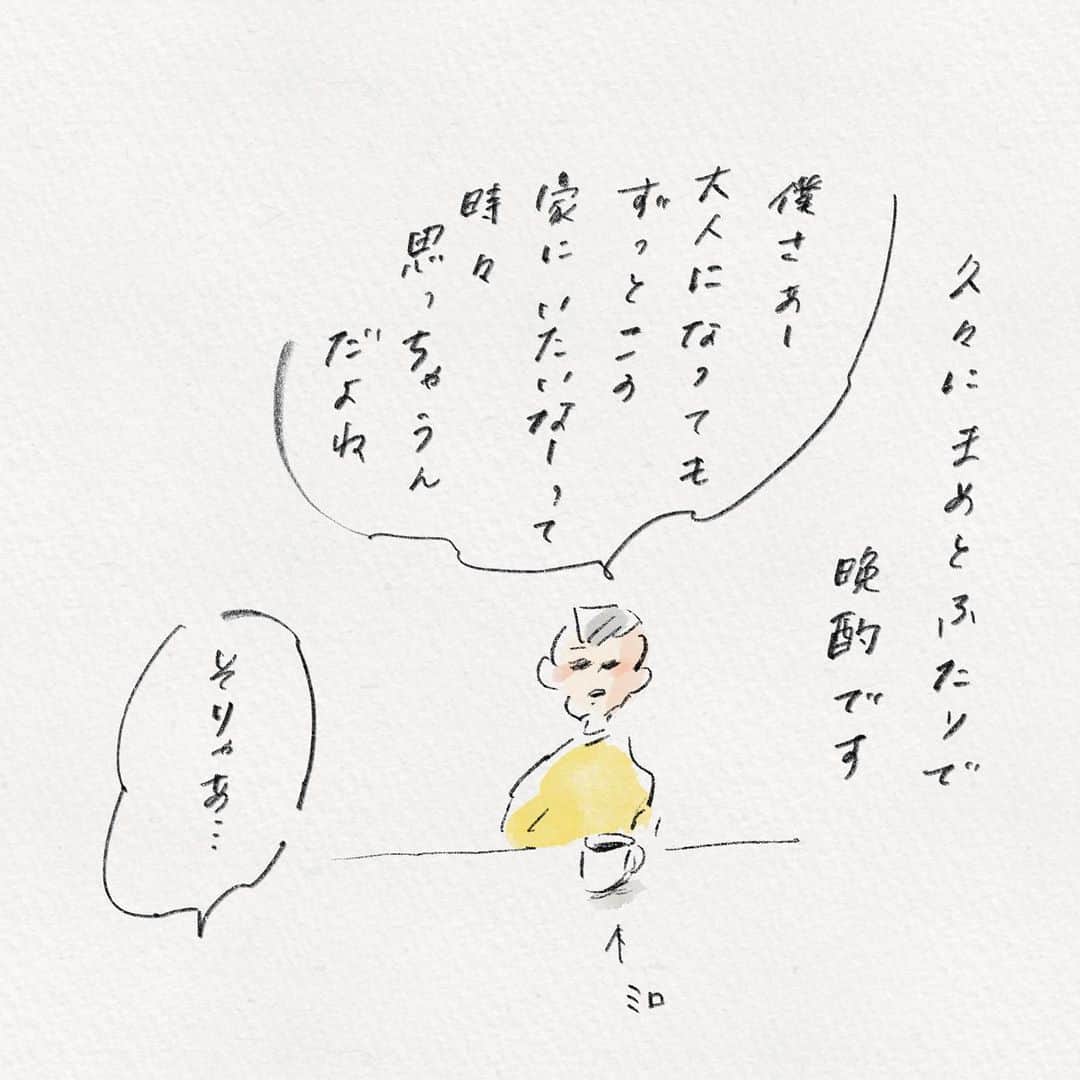 久々にまめとふたりで
晩酌です
僕さぁー
大人になっても
ずっとこの
家にいたいなーって
時々
思っちゃうん
だよね
そりゃあ…
ミロ